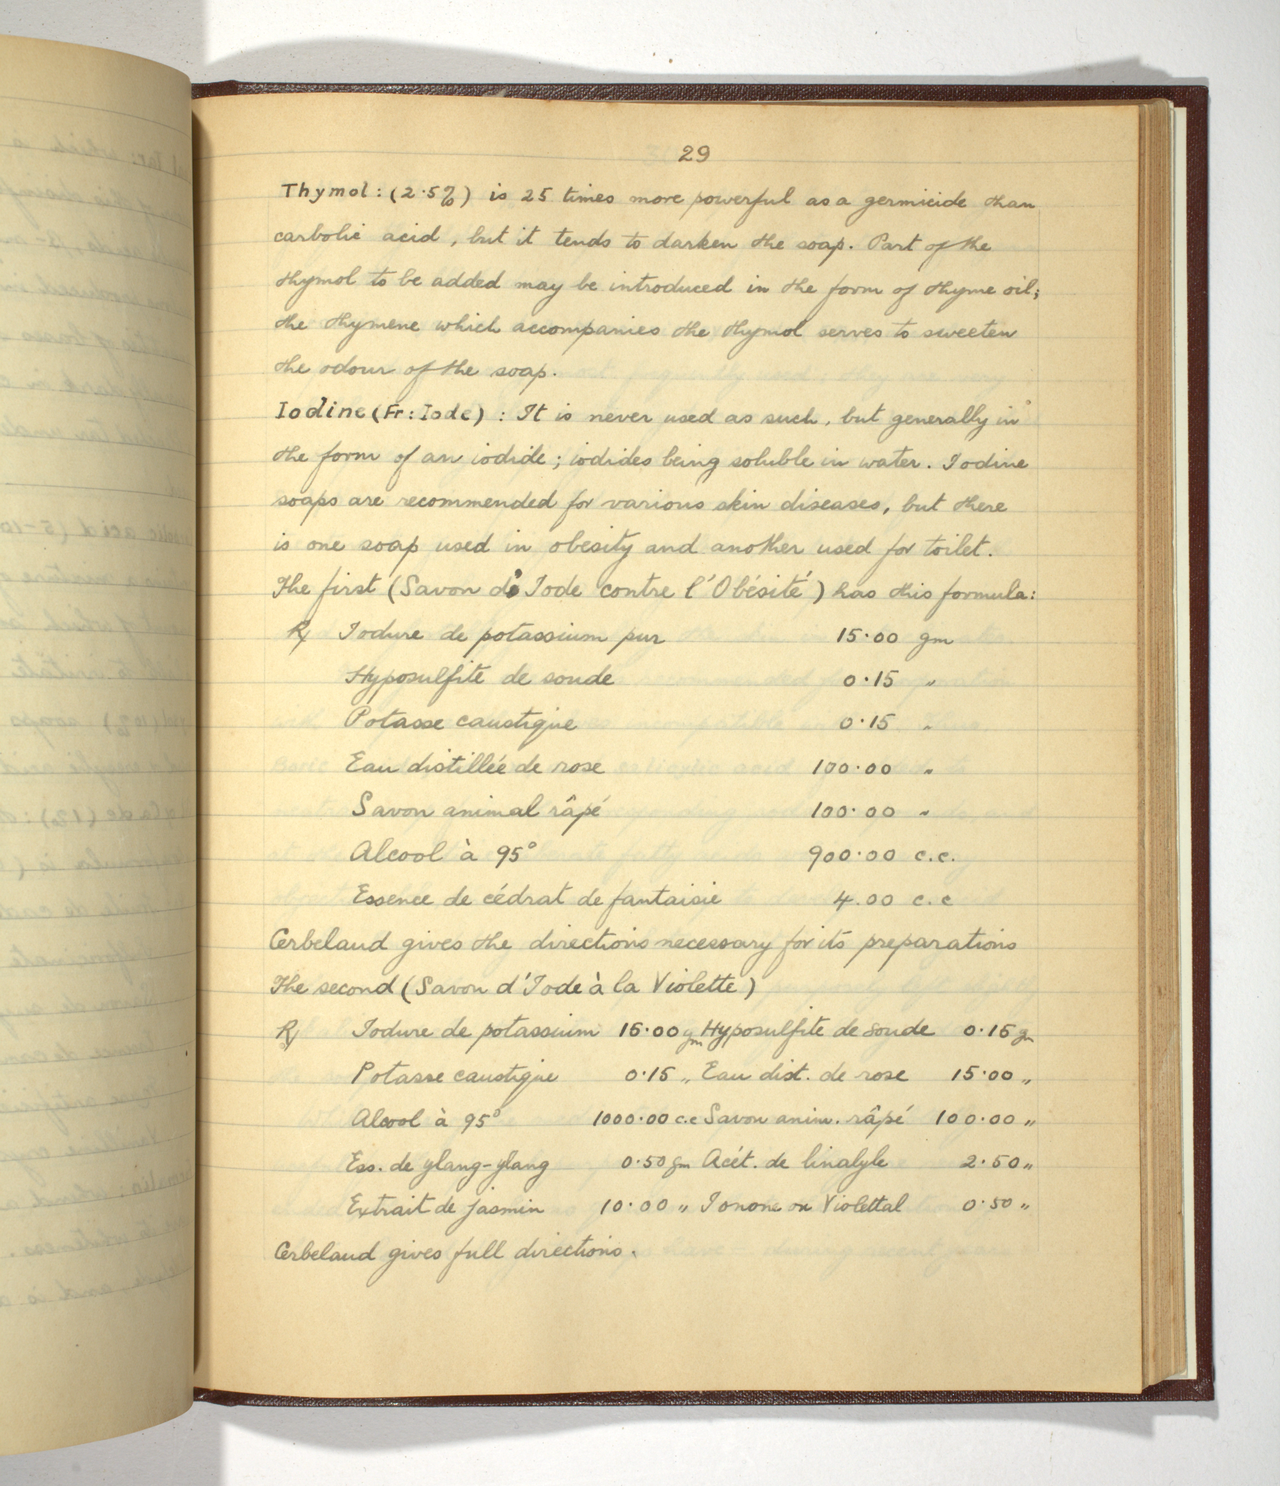 29
Thymol: (2·5%) is 25 times more powerful as a germicide than
carbolic acid, but it tends to darken the soap. Part of the
thymol to be added may be introduced in the form of thyme oil;
the thymene which accompanies the thymol serves to sweeten
the odour of the soap.
Iodine (Fr: Iode) : It is never used as such, but generally in
the form of an iodide; iodides being soluble in water. Iodine
soaps are recommended for various skin diseases, but there
is one soap used in obesity and another used for toilet.
The first (Savon d'Iode contre l'Obésité) has this formula:
℞ Iodure de potassium pur 15·00 gm
Hyposulfite de soude 0·15 "
Potasse caustique 0·15 "
Eau distillée de rose 100·00 "
Savon animal râpé 100·00 "
Alcool à 95° 900·00 c.c.
Essence de cédrat de fantaisie 4.00 c.c
Cerbelaud gives the directions necessary for its preparations
The second (Savon d'Iode à la Violette)
℞ Iodure de potassium 15·00 gm Hyposulfite de soude 0·15 gm
Potasse caustique 0·15 " Eau dist. de rose 15·00 "
Alcool à 95° 1000·00 c.c Savon anim. râpé 100·00 "
Ess. de ylang-ylang 0·50 gm Acét. de linalyle 2·50 "
Extrait de jasmin 10·00 " Ionone ou Violettal 0·50 "
Cerbelaud gives full directions.